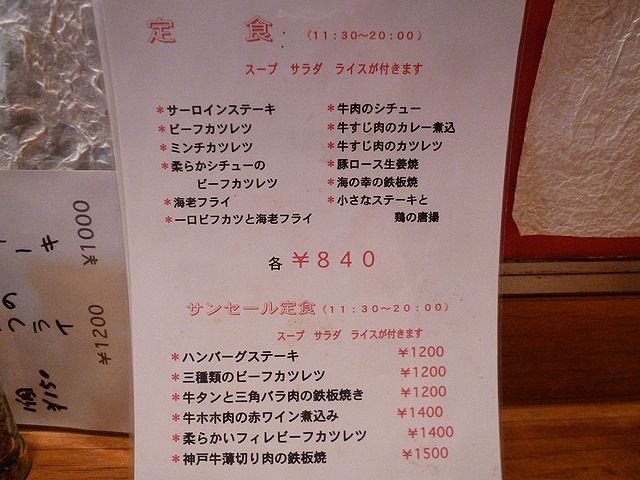 定 食 (11:30～20:00)
スープ サラダ ライスが付きます
*サーロインステーキ
*ビーフカツレツ
*ミンチカツレツ
*柔らかシチューの
ビーフカツレツ
*海老フライ
*一口ビフカツと海老フライ
*牛肉のシチュー
*牛すじ肉のカレー煮込
*牛すじ肉のカツレツ
*豚ロース生姜焼
*海の幸の鉄板焼
*小さなステーキと
鶏の唐揚
各 ￥840
サンセール定食(11:30～20:00)
スープ サラダ ライスが付きます
*ハンバーグステーキ ￥1200
*三種類のビーフカツレツ ￥1200
*牛タンと三角バラ肉の鉄板焼き ￥1200
*牛ホホ肉の赤ワイン煮込み ￥1400
*柔らかいフィレビーフカツレツ ￥1400
*神戸牛薄切り肉の鉄板焼 ￥1500
ーキ ¥1000
ライ ¥1200
¥150